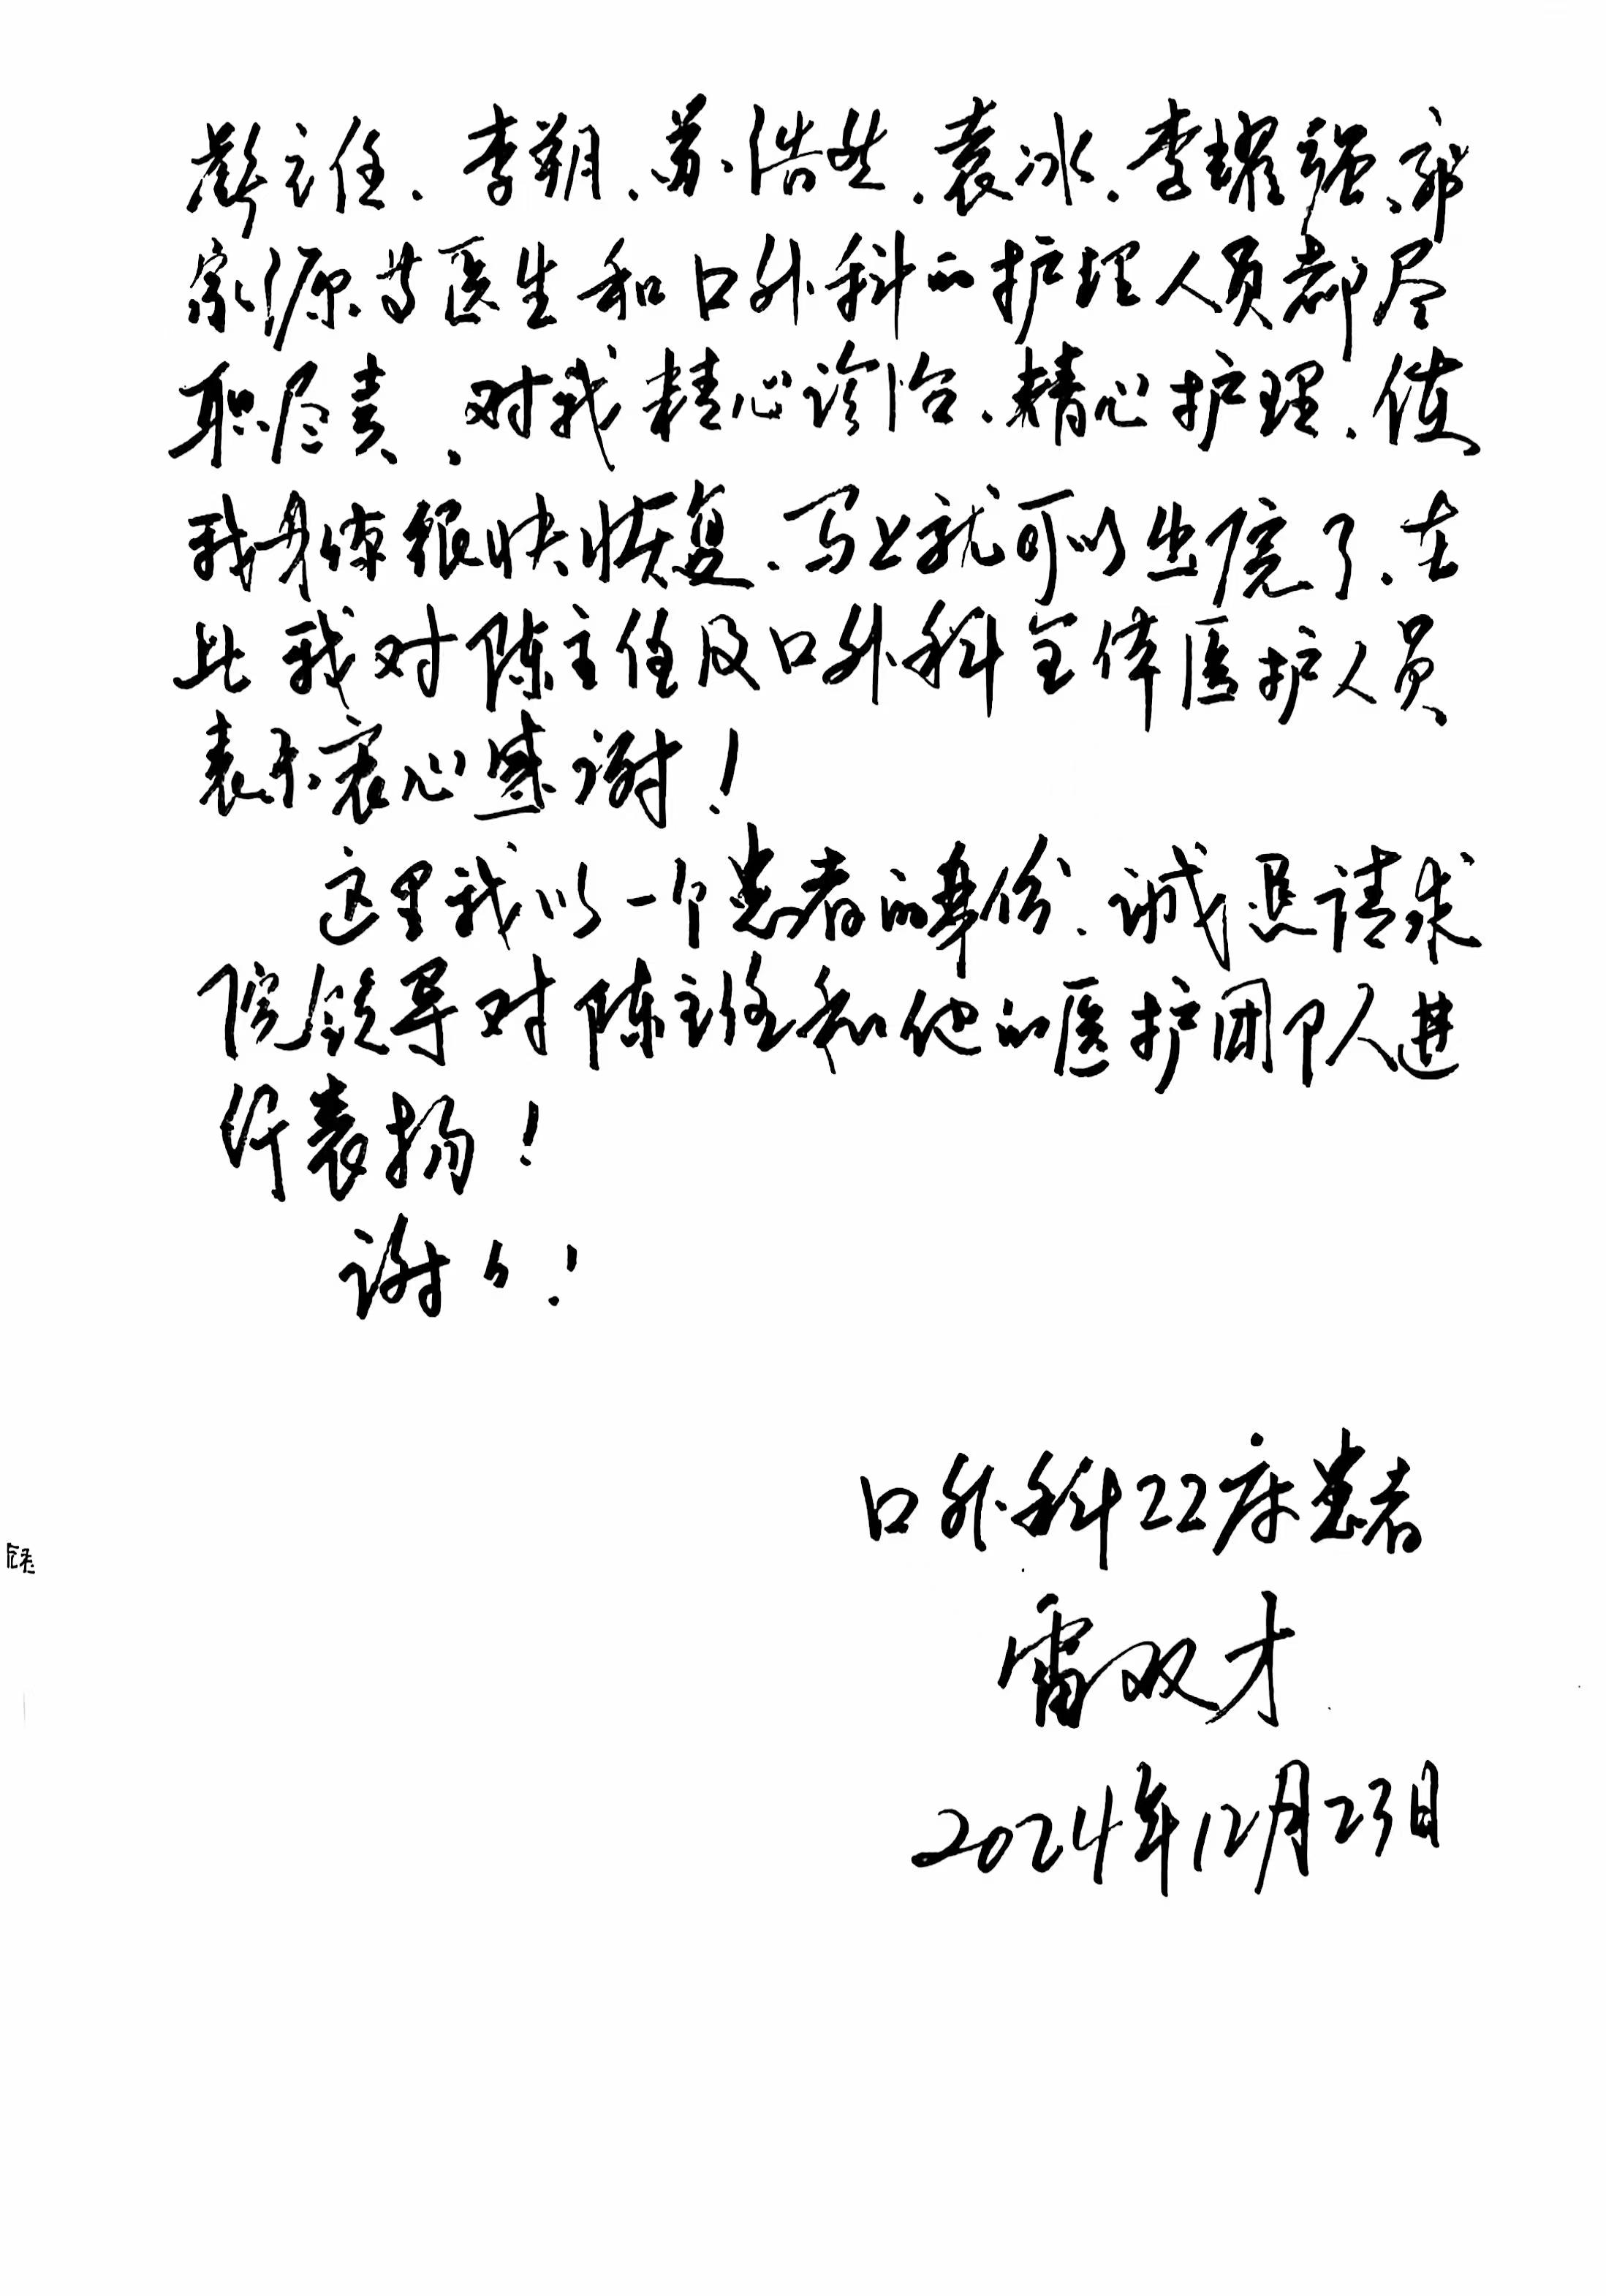 彭主任、李朔、苏浩然、袁冰、李耀强、郭
家源等医生和口外科的护理人员都尽
职尽责，对我精心诊治、精心护理，使
我身体很快恢复，马上就可以出院了，在
此我对陈主任及口外科全体医护人员
表示衷心感谢！
这里我以一个患者的身份，诚恳请求
院领导对陈主任和他的医护团队人进
行表扬！
谢々！
口外科22床患者
雷双才
2024年12月23日